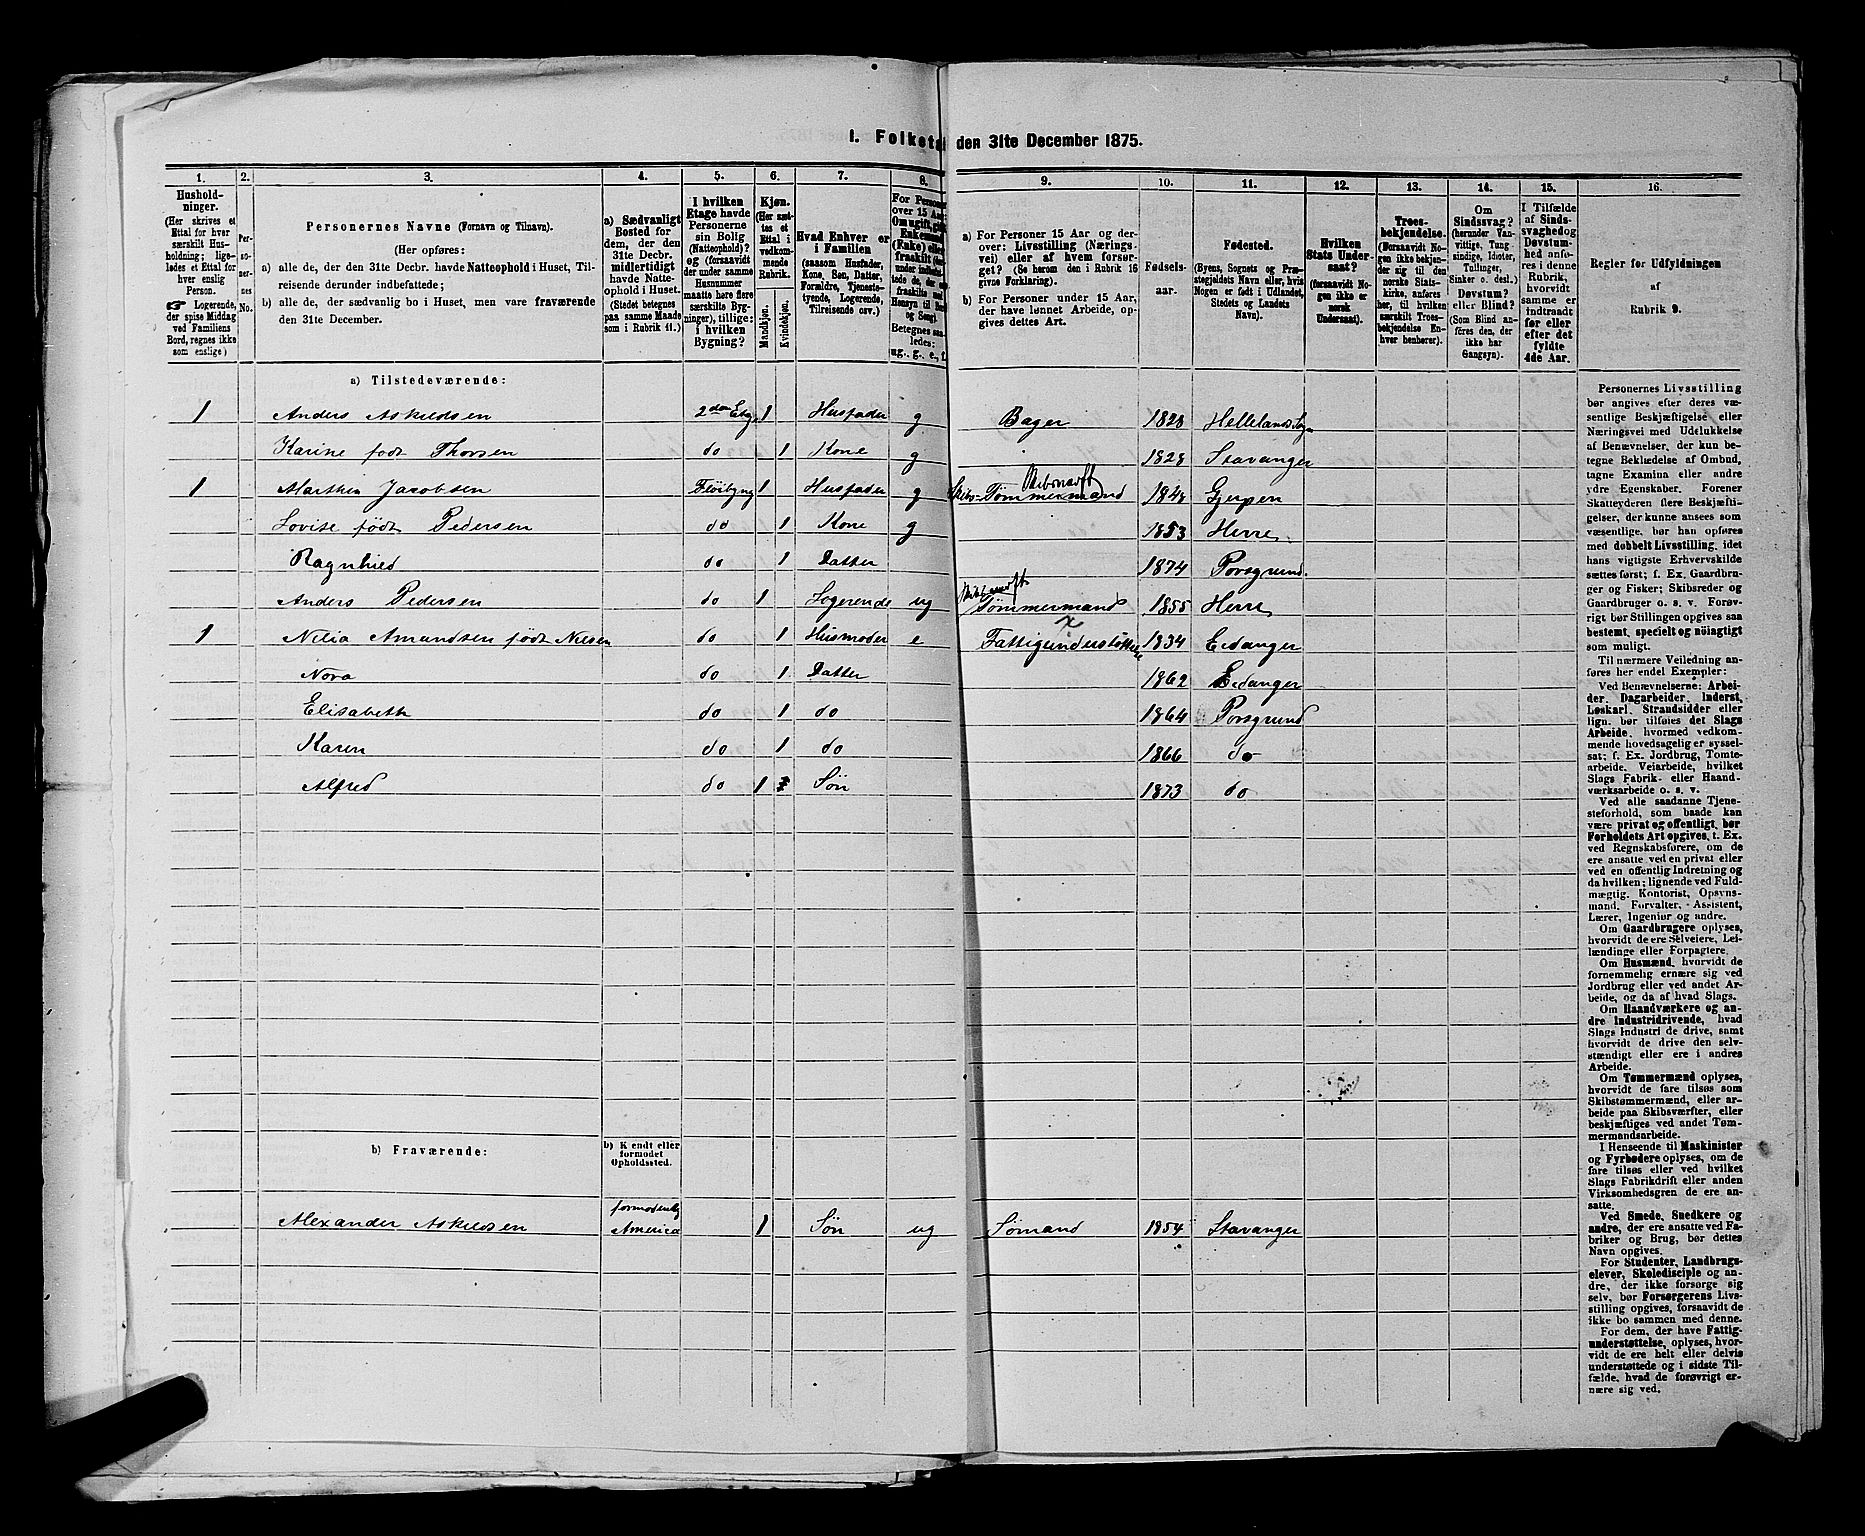 I. Folketæ den 31te December 1875.
1. 2. 3. 4. 5. 6. 7. 8. 9. 10. 11. 12. 13. 14. 15. 16.
Hushold-
ninger.
(Her skrives et
Ettal for hver
særskilt Hus-
holdning; lige-
ledes et Ettal for
hver enslig
Person.
☛ Logerende,
der spise Middag
ved Familiens
Bord, regnes ikke
som enslige)
Per-
so-
ner-
nes
No.
Personernes Navne (Fornavn og Tilnavn).
(Her opføres:
a) alle de, der den 31te Decbr. havde Natteophold i Huset, Til-
reisende derunder indbefattede;
b) alle de, der sædvanlig bo i Huset, men vare fraværende
den 31te December.
a) Sædvanligt
Bosted for
dem, der den
31te Decbr.
midlertidigt
havde Natte-
ophold i Huset.
(Stedet betegnes
paa samme Maade
som i Rubrik 11.)
I hvilken
Etage havde
Personerne
sin Bolig
(Natteophold)?
og (forsaavidt
der under samme
Husnummer
maatte høre flere
særskilte Byg-
ninger), tillige:
i hvilken
Bygning?
Kjøn.
(Her sæt-
tes et
Ettal i
vedkom-
mende
Rubrik.
Mandkjøn.
Kvindekjøn.
Hvad Enhver er
i Familien
(saasom Husfader,
Kone, Søn, Datter,
Forældre, Tjeneste-
tyende, Logerende,
Tilreisende osv.)
For Persone
over 15 Aar:
Om ugift, gift
Enkemand
(Enke) eller
fraskilt
Betegnes saa-
ledes:
ug., g., e., f.
a) For Personer 15 Aar og der-
over: Livsstilling (Nærings-
vei) eller af hvem forsør-
get? (Se herom den i Rubrik 16
givne Forklaring).
b) For Personer under 15 Aar,
der have lønnet Arbeide, op-
gives dettes Art.
Fødsels-
aar.
Fødested.
(Byens, Sognets og Præ-
stegjeldets Navn eller, hvis
Nogen er født i Udlandet,
Stedets og Landets
Navn).
Hvilken
Stats Under-
saat?
(forsaavidt No-
gen ikke er
norsk
Undersaat).
Troes-
bekjendelse.
(Forsaavidt No-
gen ikke bekjen-
der sig til den
norske Stats-
kirke, anføres
her, til hvilken
særskilt Troes-
bekjendelse En-
hver henhører).
Om
Sindssvag?
(herunder Van-
vittige, Tung
sindige, Idioter,
Tullinger,
Sinker o. desl.)
Døvstum?
eller Blind?
(Som Blind an-
føres den, der
ikke har
Gangsyn).
I Tilfælde
af Sinds-
svaghed og
Døvstum-
hed anfø-
res i denne
Rubrik,
hvorvidt
samme er
indtraadt
før eller
efter det
fyldte
4de Aar.
Regler for Udfyldningen
af
Rubrik 9.
a) Tilstedeværende:
1 Anders Askildsen 2den Etg. 1 Husfader g Bager 1828 Hellelands Sogn
Karine født Thorsen do 1 Kone g 1828 Stavanger
1 Marthin Jacobsen Fløibyng 1 Husfader g Skibs-Tømmermand 1848 Gjerpen
Lovise født Pedersen do 1 Kone g 1853 Herre
Ragnhild do 1 Datter 1874 Porsgrund
Anders Pedersen do 1 Logerende ug Tømmermand 1855 Herre
1 Nilia Amandsen født Nilsen do 1 Husmoder e Fattigunderstøttelse 1834 Eidanger
Nora do 1 Datter 1862 Eidanger
Elisabeth do 1 do 1864 Porsgrund
Karen do 1 do 1866 do
Alfred do 1 Søn 1873 do
b) Fraværende:
b) Kjendt eller
formodet
Opholdssted.
Alexander Askildsen formodentlig America 1 Søn ug Sømand 1854 Stavanger
Personernes Livsstilling
bør angives efter deres væ-
sentlige Beskjæftigelse eller
Næringsvei med Udelukkelse
af Benævnelser, der kun be-
tegne Beklædelse af Ombud,
tagne Examina eller andre
ydre Egenskaber. Forener
Skatteyderen flere Beskjæfti-
gelser, der kunne ansees som
væsentlige, bør han opføres
med dobbelt Livsstilling, idet
hans vigtigste Erhvervskilde
sættes først; f. Ex. Gaardbru-
ger og Fisker; Skibsreder og
Gaardbruger o. s. v. Forøv-
rigt bør Stillingen opgives saa
bestemt, specielt og nøiagtigt
som muligt.
Til nærmere Veiledning an-
føres her endel Exempler:
Ved Benævnelserne: Arbei-
der, Dagarbeider, Inderst,
Løskarl, Strandsidder eller
lign. bør tilføies det Slags
Arbeide, hvormed vedkom-
mende hovedsagelig er syssel-
sat; f. Ex. Jordbrug, Tomte-
arbeide, Veiarbeide, hvilket
Slags Fabrik- eller Haand-
værksarbeide o. s. v.
Ved alle saadanne Tjene-
steforhold, som baade kan
være privat og offentligt, bør
Forholdets Art opgives, t. Ex.
ved Regnskabsførere, om de
ere ansatte ved en privat eller
ved en offentlig Indretning og
da hvilken; lignende ved Fuld-
mægtig, Kontorist, Opsyns-
mand, Forvalter, Assistent,
Lærer, Ingeniør og andre.
Om Gaardbrugere oplyses,
hvorvidt de ere Selveiere, Lei-
lændinge eller Forpagtere.
Om Husmænd, hvorvidt de
fornemmelig ernære sig ved
Jordbrug eller ved andet Ar-
beide, og da af hvad Slags.
Om Haandværkere og an-
dre Industridrivende, hvad
Slags Industri de drive, samt
hvorvidt de drive den selv-
stændigt eller ere i andres
Arbeide.
Om Tømmermænd oplyses,
hvorvidt de fare tilsøs som
Skibstømmermænd, eller ar-
beide paa Skibsværfter, eller
beskjæftiges ved andet Tøm-
mermandsarbeide.
I Henseende til Maskinister
og Fyrbødere oplyses, om de
fare tilsøs eller ved hvilket
Slags Fabrikdrift eller anden
Virksomhedsgren de ere an-
satte.
Ved Smede, Snedkere og
andre, der ere ansatte ved Fa-
briker og Brug, bør dettes
Navn opgives.
For Studenter, Landbrugs-
elever, Skoledisciple og an-
dre, der ikke forsørge sig
selv, bør Forsørgerens Livs-
stilling opgives, forsaavidt de
ikke bo sammen med denne.
For dem, der have Fattig-
understøttelse, oplyses, hvor-
vidt de ere helt eller delvis
understøttede og i sidste Til-
fælde, hvad de forøvrigt er-
nære sig ved.